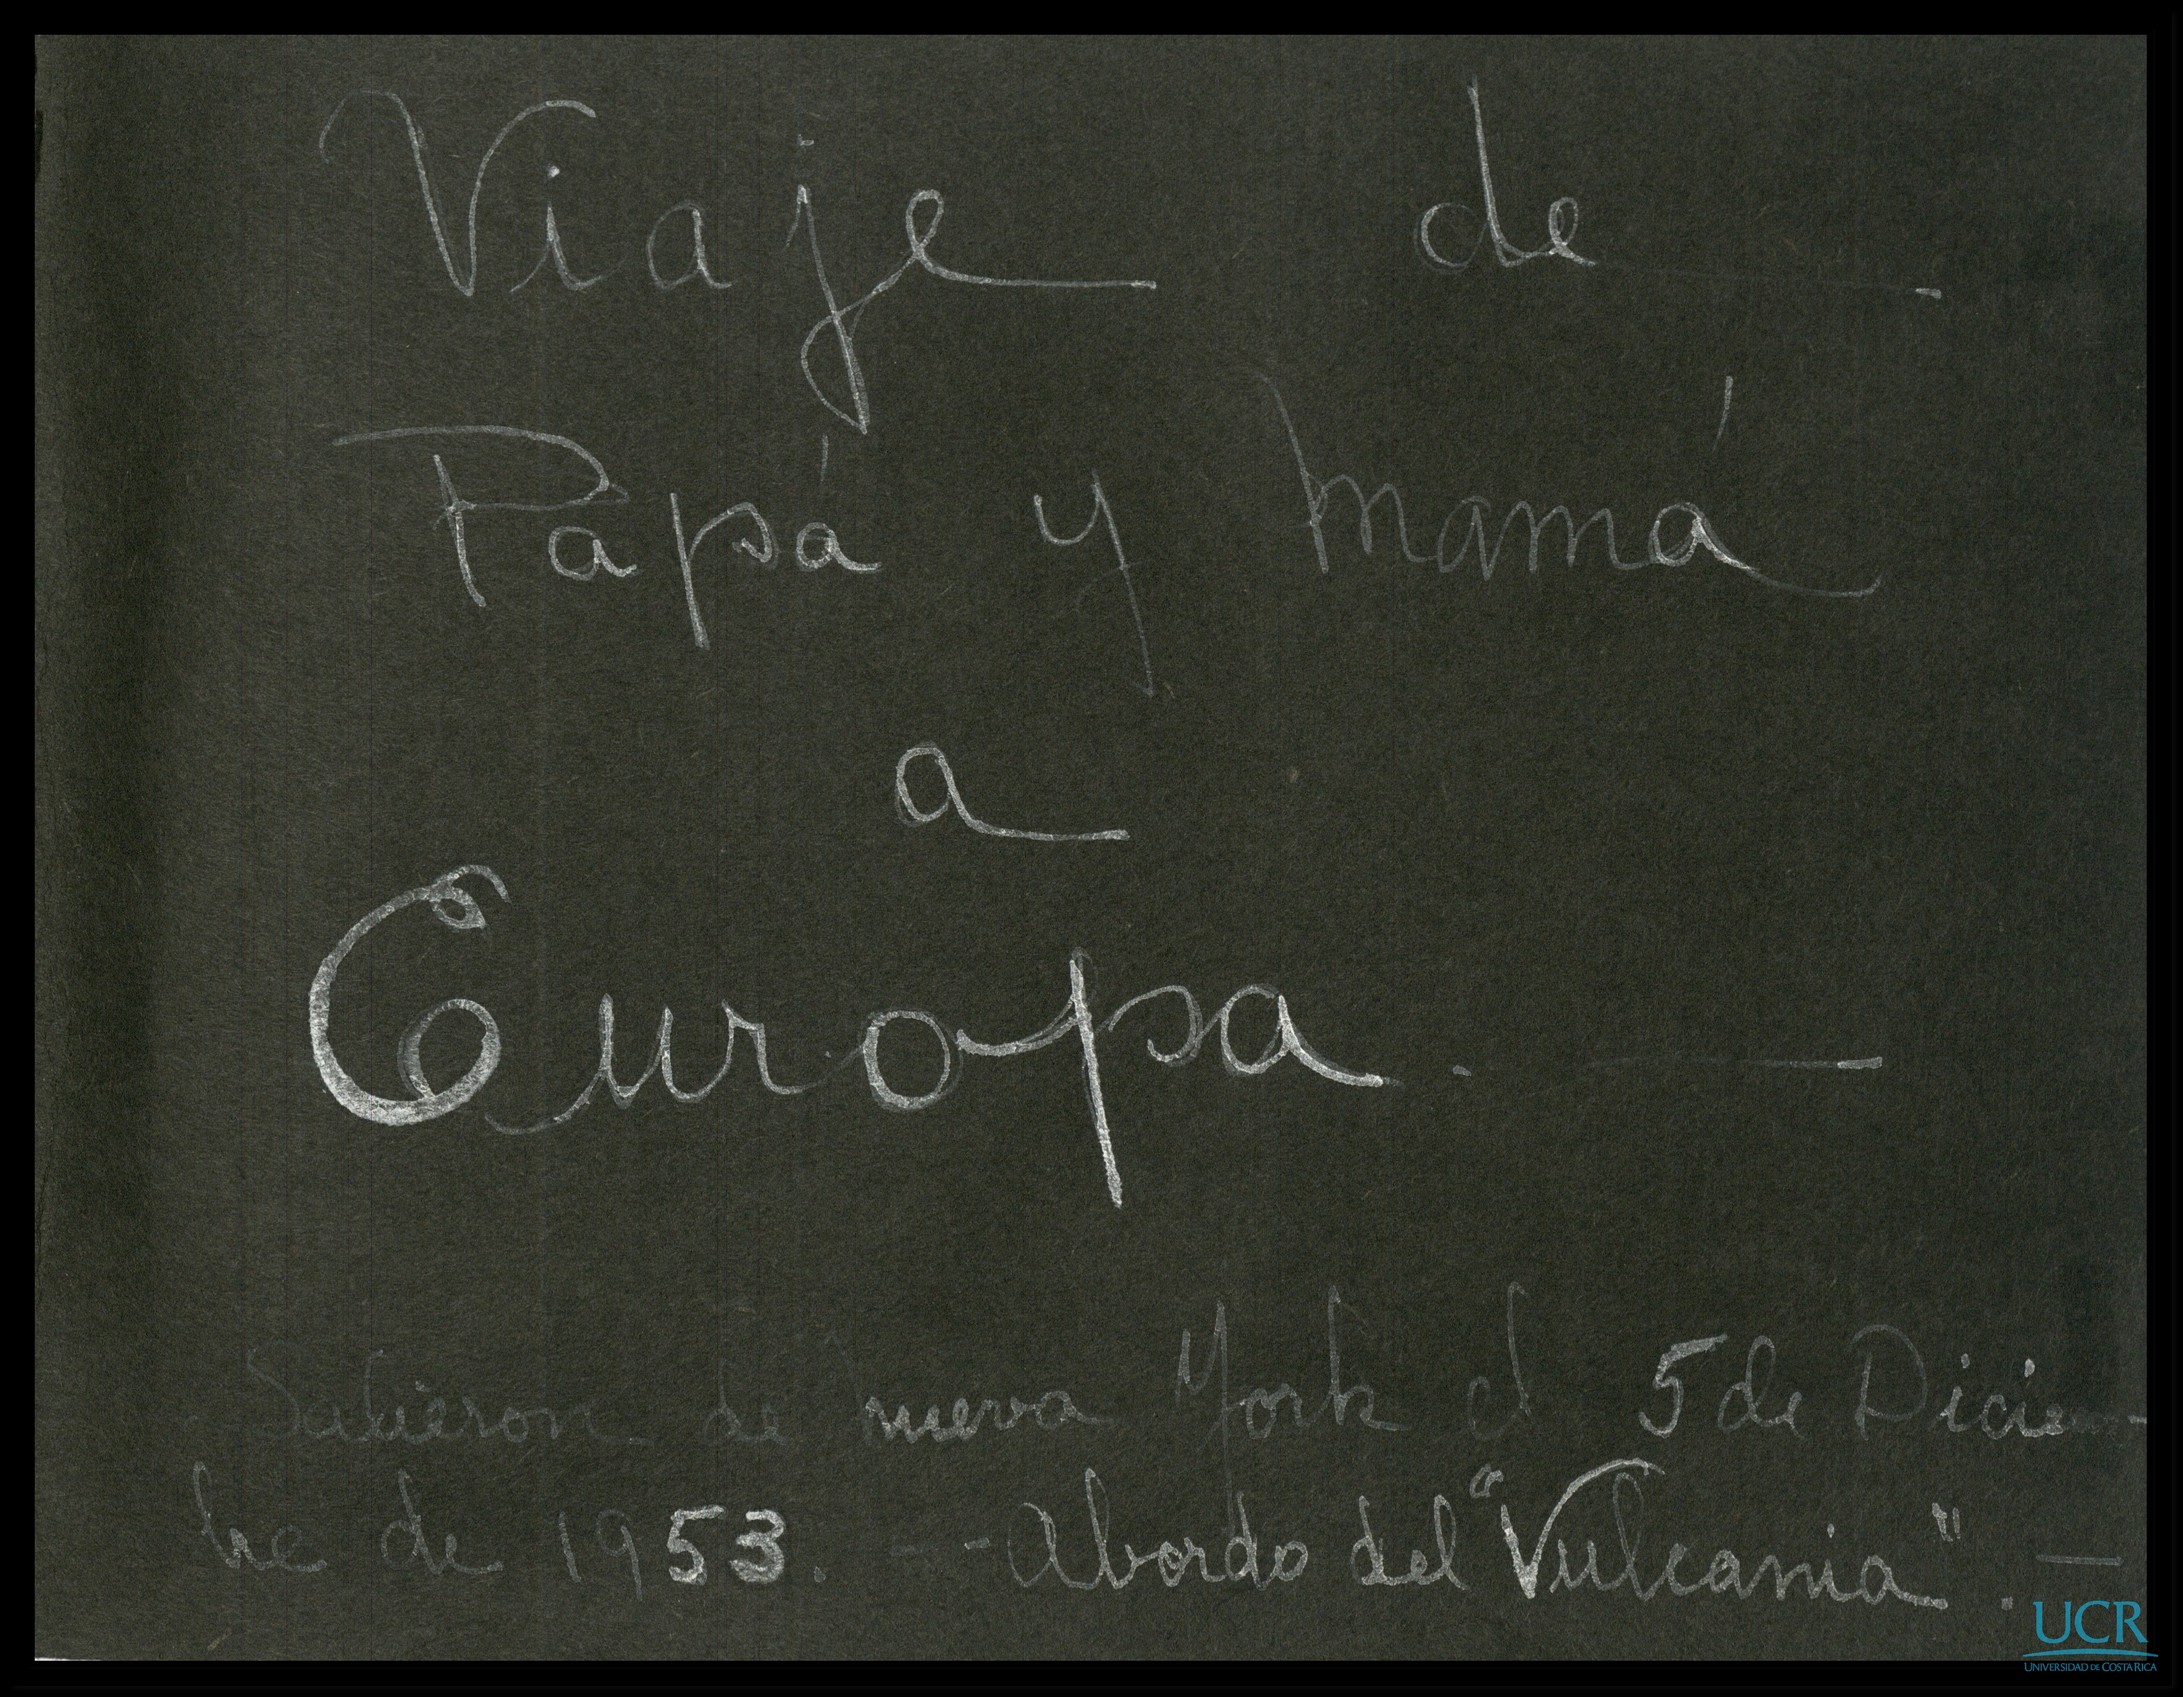 Viaje de
Papá y Mamá
a
Europa. —
Salieron de Nueva York el 5 de Diciem-
bre de 1953. - - Abordo del "Vulcania". —
UCR
UNIVERSIDAD DE COSTA RICA